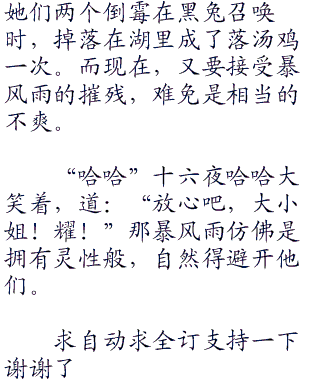 她们两个倒霉在黑兔召唤
时，掉落在湖里成了落汤鸡
一次。而现在，又要接受暴
风雨的摧残，难免是相当的
不爽。
“哈哈”十六夜哈哈大
笑着，道：“放心吧，大小
姐！耀！”那暴风雨仿佛是
拥有灵性般，自然得避开他
们。
求自动求全订支持一下
谢谢了